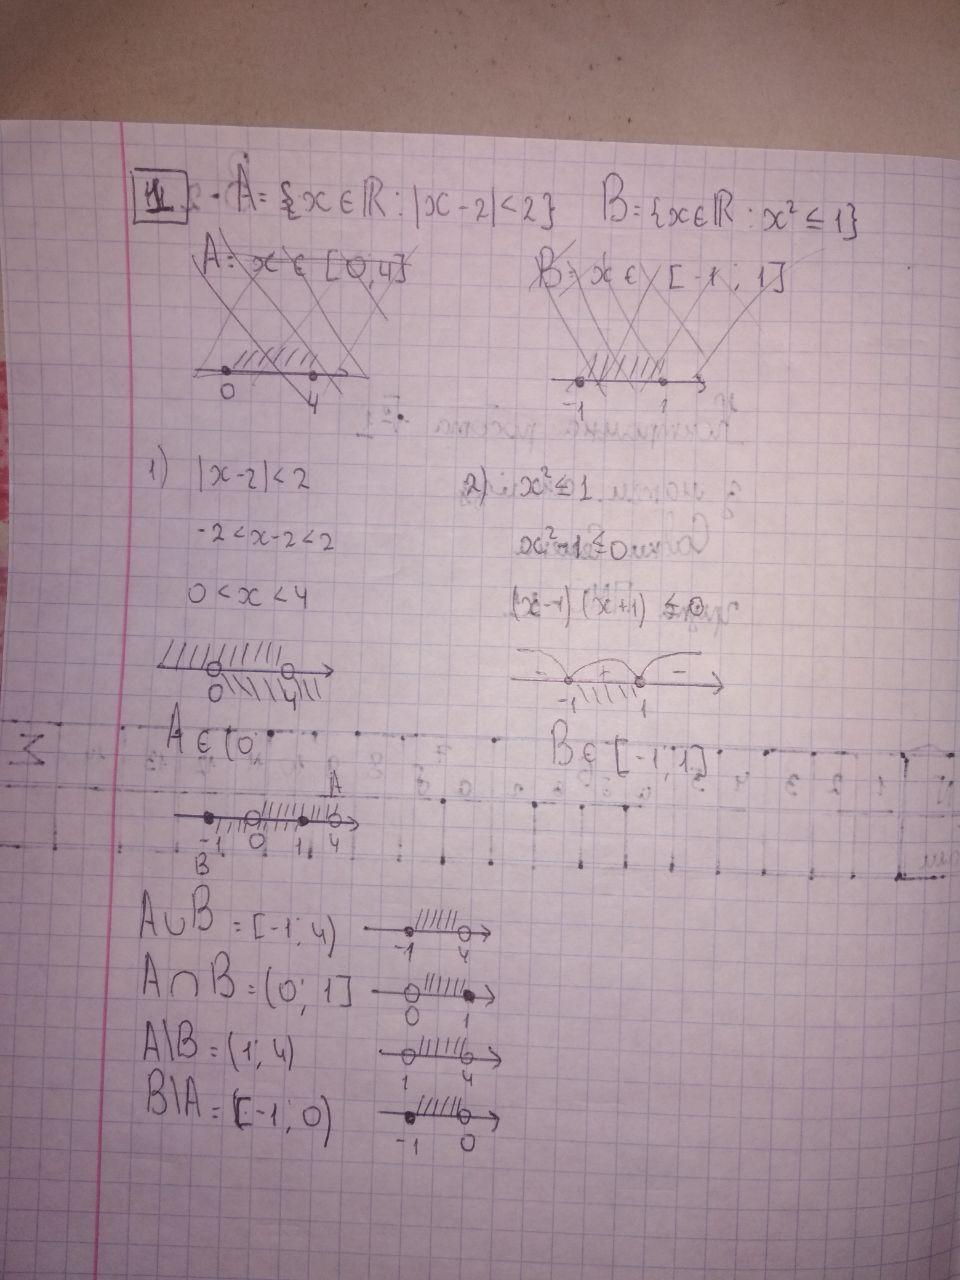 1. A = {x ∈ ℝ : |x - 2| < 2} B = {x ∈ ℝ : x² ≤ 1}
A = x ∈ [0, 4] B = x ∈ [-1; 1]
0 4 -1 1
1) |x-2| < 2 2) x² ≤ 1
-2 < x-2 < 2 x²-1 ≤ 0
0 < x < 4 (x-1) (x+1) ≤ 0
0 4 - + - -1 1
A ∈ (0; B ∈ [-1; 1]
A
-1 0 1 4
B
A∪B = [-1; 4) -1 4
A∩B = (0; 1] 0 1
A\B = (1; 4) 1 4
B\A = [-1; 0) -1 0